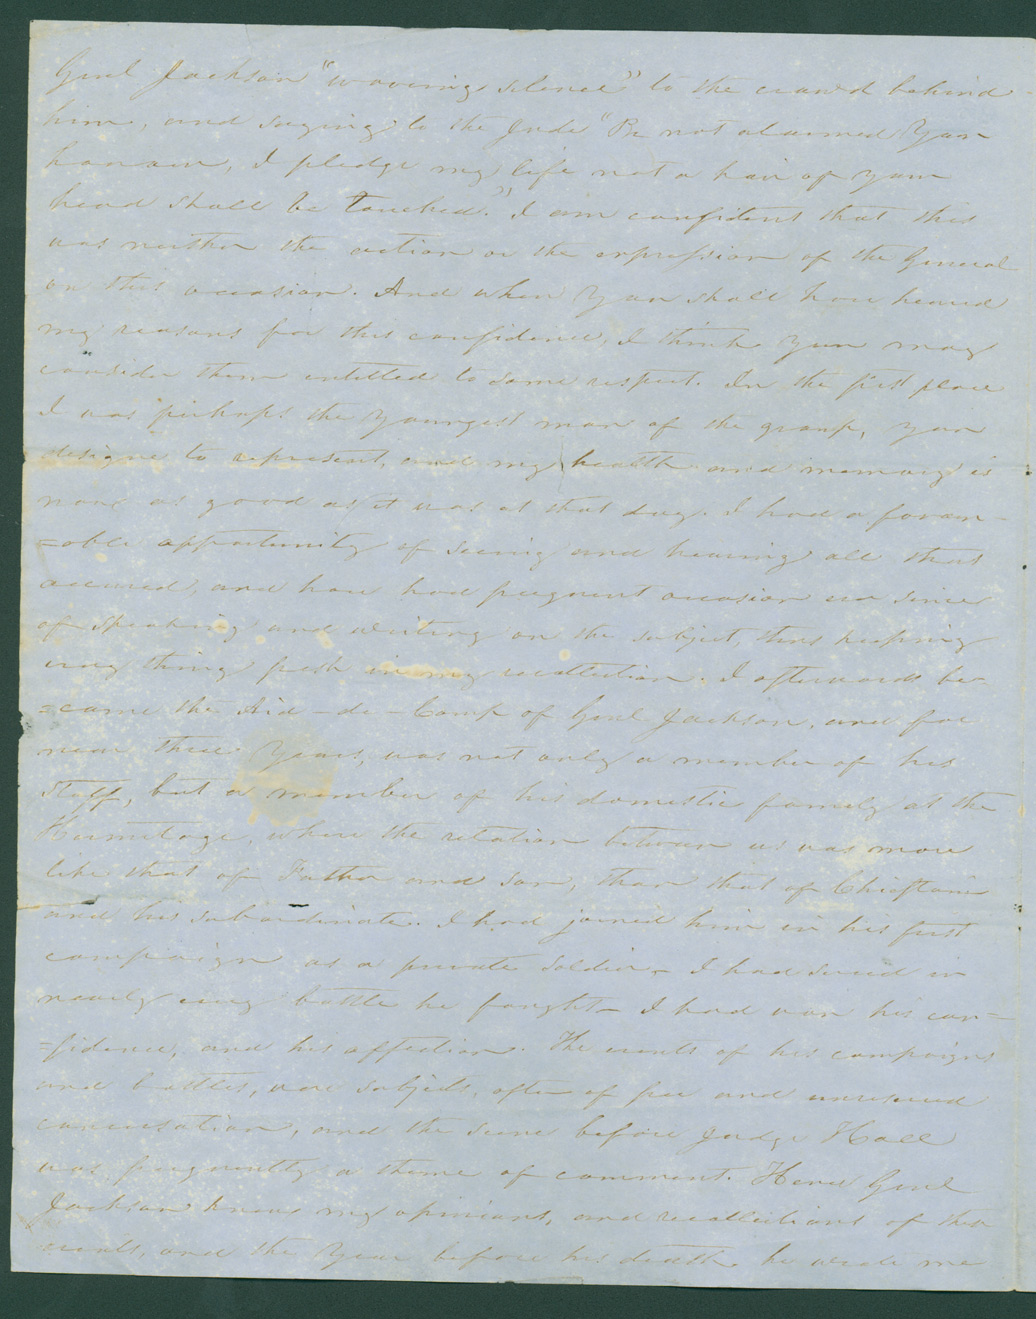 Genl Jackson "wavering silence" to the crowd behind
him, and saying to the Jude "Be not alarmed Your
honour, I pledge my life not a hair of your
head shall be touched." I am confident that this
was neither the action or the expression of the General
on this occasion. And when You shall have heard
my reasons for this confidence, I think You may
consider them entitled to some respect. In the first place
I was perhaps the Youngest man of the group, you
designe to represent, and my health and memory is
now as good as it was at that day. I had a favour-
=able opportunity of seeing and hearing all that
occured, and have had frequent occasion since
of speaking and writing on the subject, thus keeping
every thing fresh in my recollection. I afterwards be-
=came the Aid-de-Camp of Genl Jackson, and for
near three Years, was not only a member of his
Staff, but a member of his domestic family at the
Hermitage, where the relation between us was more
like that of Father and son, than that of Chieftain
and his subordinate. I had joined him in his first
campaign as a private soldier - I had served in
nearly every battle he fought - I had won his con-
=fidence, and his affection. The events of his campaigns
and battles, were subjects, often of free and unreserved
conversation, and the scene before Judge Hall
was frequently a theme of comment. Hence Genl
Jackson knew my opinions, and recollections of these
events, and the Year before his death he wrote me